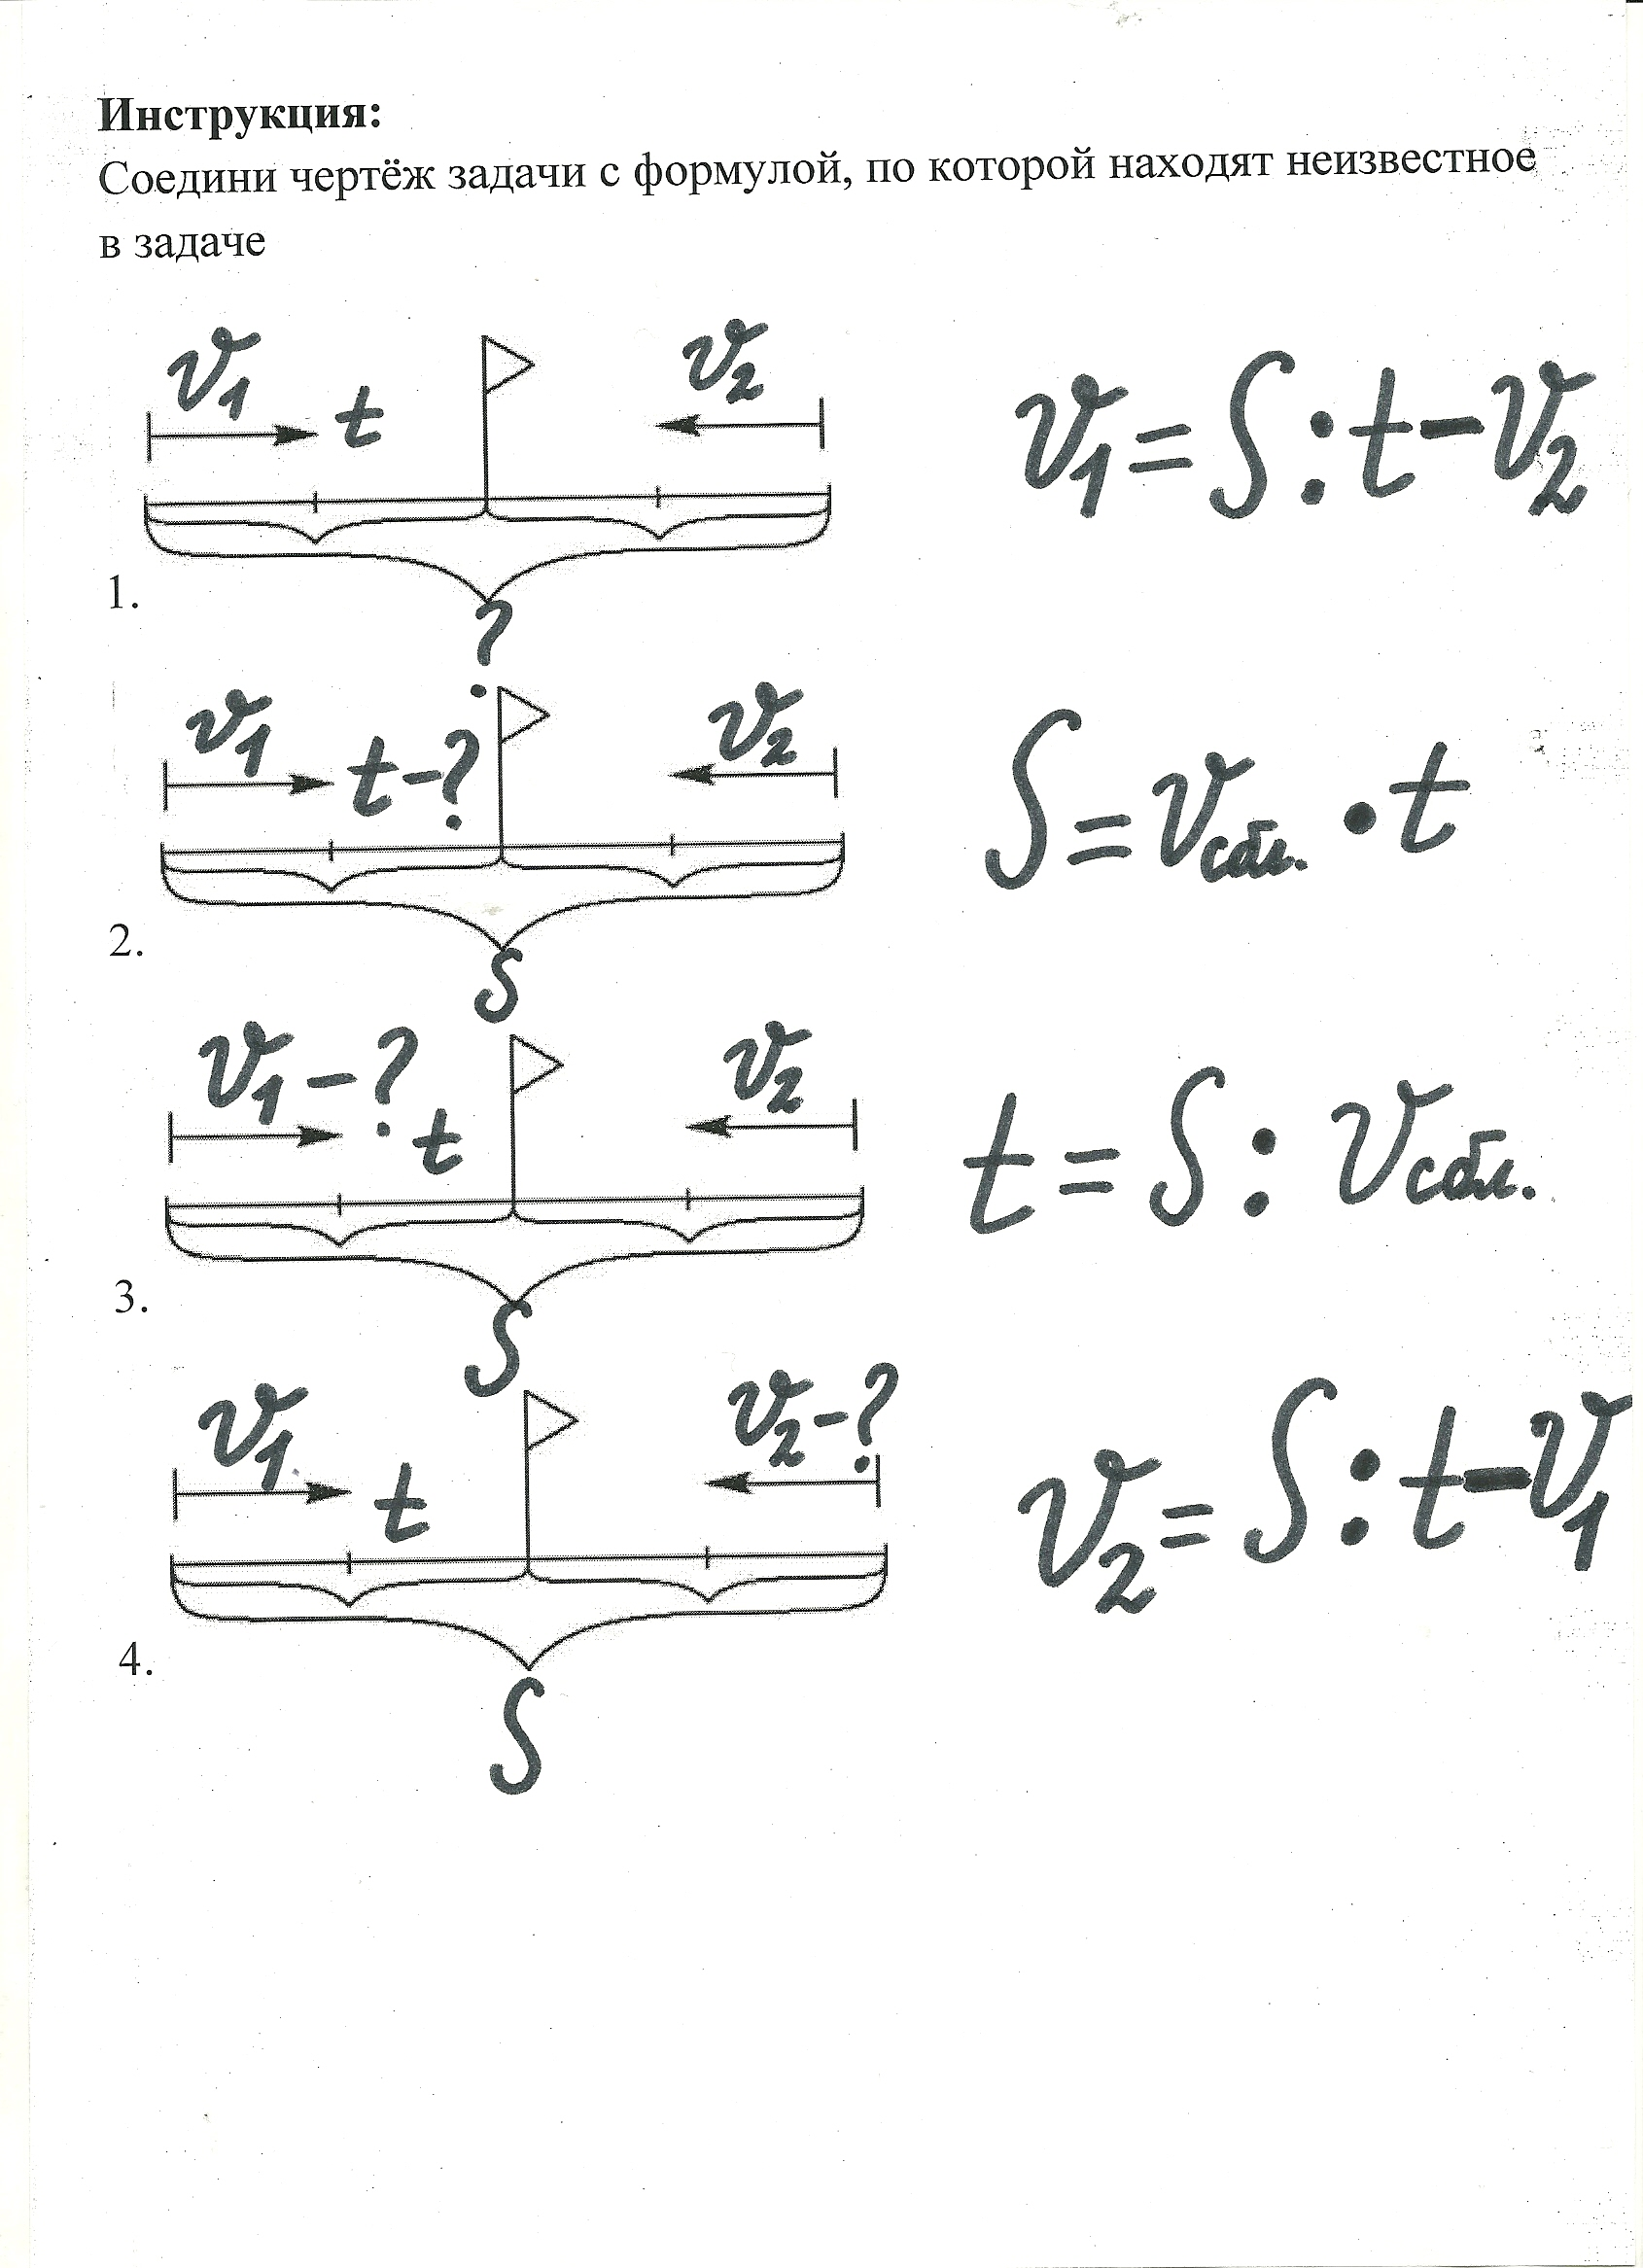 Инструкция:
Соедини чертёж задачи с формулой, по которой находят неизвестное
в задаче
v₁ t v₂
v₁ = S : t - v₂
1.
?
v₁ t - ? v₂
S = vсбл. · t
2.
S
v₁ - ? t v₂
t = S : vсбл.
3.
S
v₁ t v₂ - ?
v₂ = S : t - v₁
4.
S